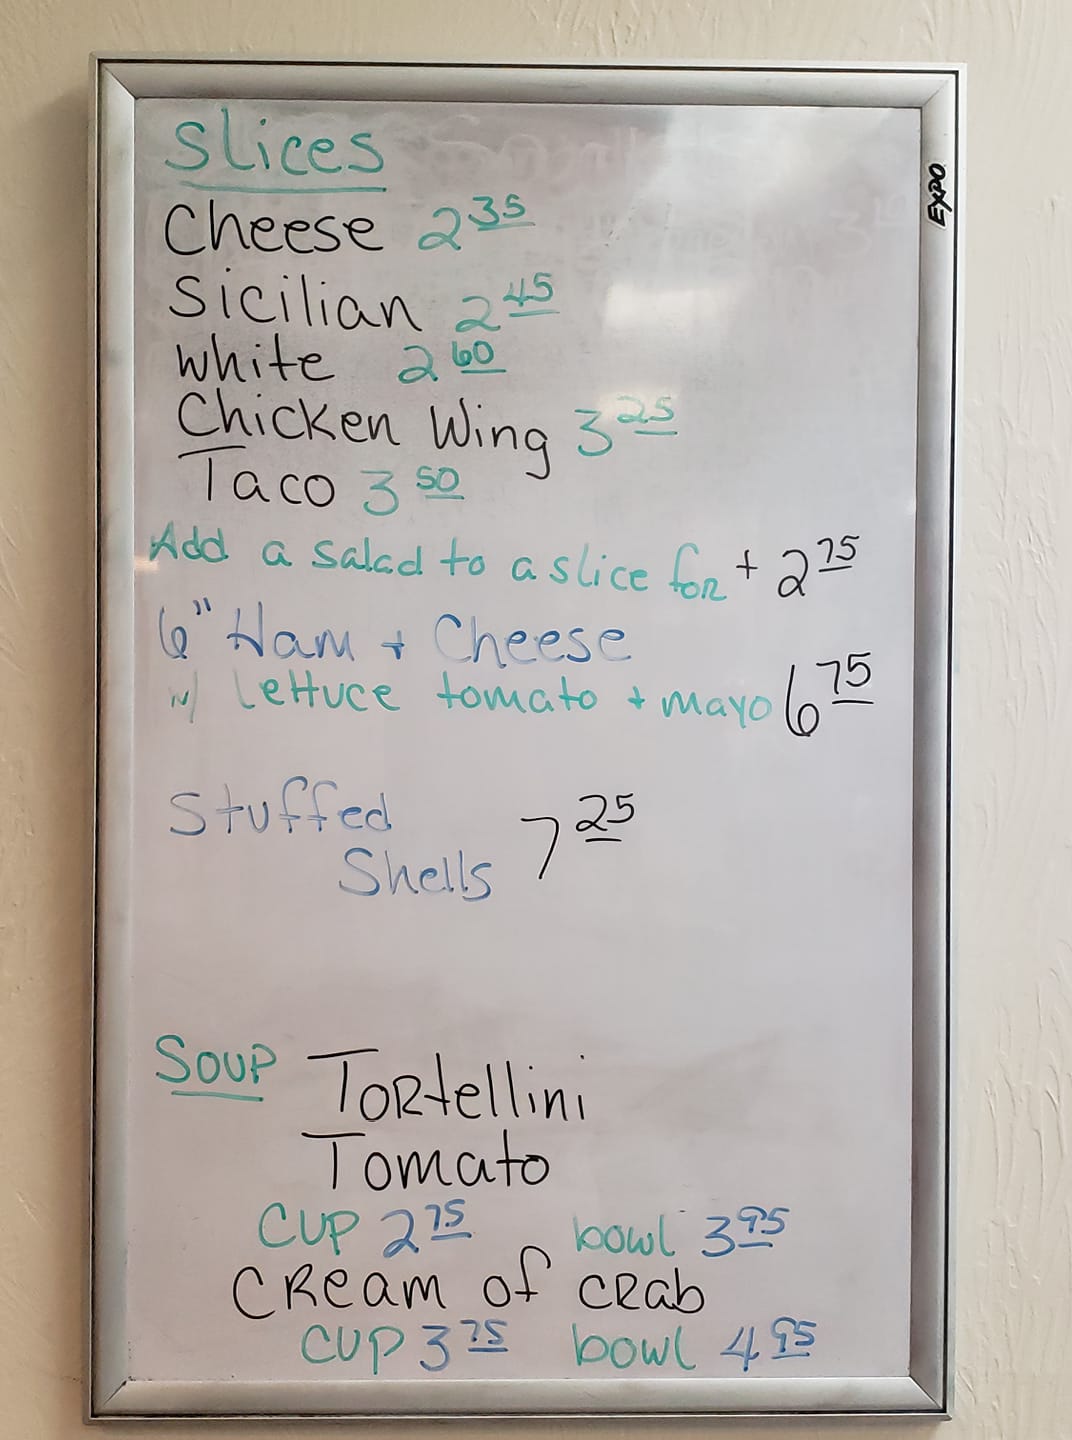 Slices
Cheese 2 35
Sicilian 2 45
white 2 60
Chicken Wing 3 25
Taco 3 50
Add a salad to a slice for + 2 75
6" Ham + Cheese
w/ lettuce tomato + mayo 6 75
Stuffed
Shells 7 25
Soup Tortellini
Tomato
Cup 2 75 bowl 3 95
Cream of Crab
Cup 3 75 bowl 4 95
EXPO